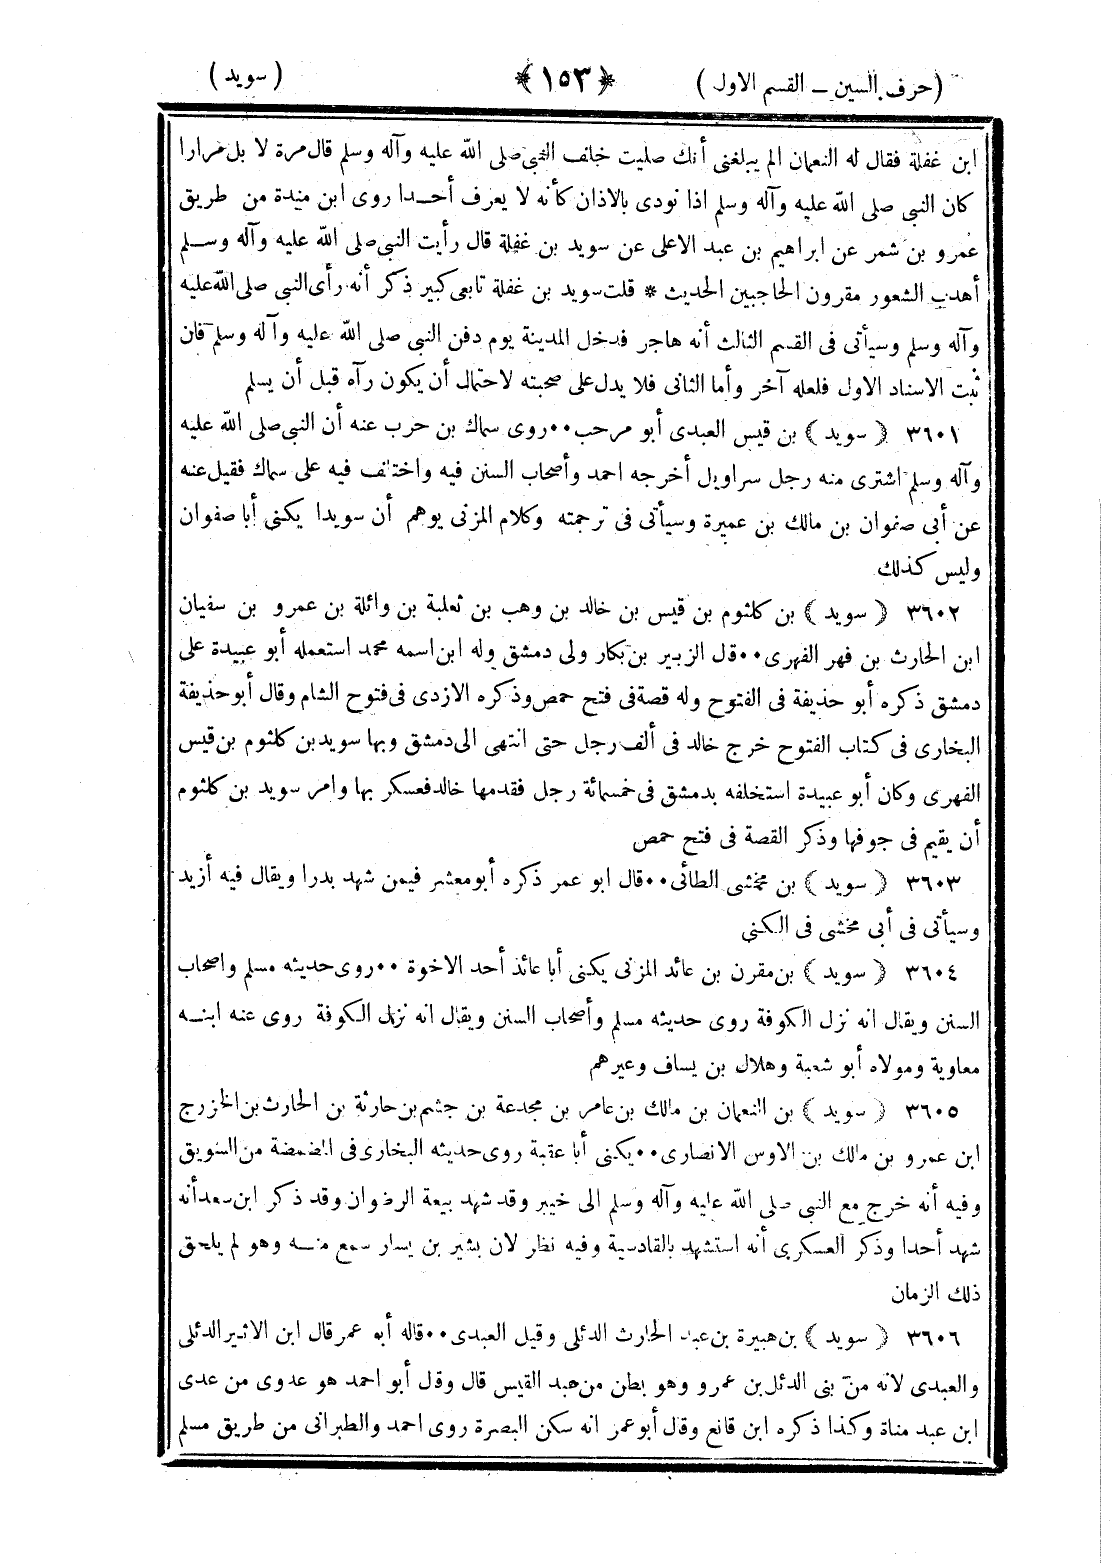 (حرف السين ــ القسم الاول) ﴿١٥٣﴾ (سويد)
ابن غفلة فقال له النعمان الم يبلغنى أنك صليت خلف النبى صلى الله عليه وآله وسلم قال مرة لا بل مرارا
كان النبى صلى الله عليه وآله وسلم اذا نودى بالاذان كأنه لا يعرف أحـدا روى ابن مندة من طريق
عمرو بن شمر عن ابراهيم بن عبد الاعلى عن سويد بن غفلة قال رأيت النبى صلى الله عليه وآله وسـلم
أهدب الشعور مقرون الحاجبين الحديث * قلت سويد بن غفلة تابعى كبير ذكر أنه رأى النبى صلى الله عليه
وآله وسلم وسيأتى فى القسم الثالث أنه هاجر فدخل المدينة يوم دفن النبى صلى الله عليه وآله وسلم فان
ثبت الاسناد الاول فلعله آخر وأما الثانى فلا يدل على صحبته لاحتمال أن يكون رآه قبل أن يسلم
٣٦٠١ ﴿ سويد ﴾ بن قيس العبدى أبو مرحب٠٠روى سماك بن حرب عنه أن النبى صلى الله عليه
وآله وسلم اشترى منه رجل سراويل أخرجه احمد وأصحاب السنن فيه واختلف فيه على سماك فقيل عنه
عن أبى صفوان بن مالك بن عميرة وسيأتى فى ترجمته وكلام المزنى يوهم أن سويدا يكنى أبا صفوان
وليس كذلك
٣٦٠٢ ﴿ سويد ﴾ بن كلثوم بن قيس بن خالد بن وهب بن ثعلبة بن وائلة بن عمرو بن سفيان
ابن الحارث بن فهر الفهرى٠٠قل الزبير بن بكار ولى دمشق وله ابن اسمه محمد استعمله أبو عبيدة على
دمشق ذكره أبو حذيفة فى الفتوح وله قصة فى فتح حمص وذكره الازدى فى فتوح الشام وقال أبو حذيفة
البخارى فى كتاب الفتوح خرج خالد فى ألف رجل حتى انتهى الى دمشق وبها سويد بن كلثوم بن قيس
الفهرى وكان أبو عبيدة استخلفه بدمشق فى خمسمائة رجل فقدمها خالد فعسكر بها وامر سويد بن كلثوم
أن يقيم فى جوفها وذكر القصة فى فتح حمص
٣٦٠٣ ﴿ سويد ﴾ بن مخشى الطائى٠٠قال ابو عمر ذكره أبو معشر فيمن شهد بدرا ويقال فيه أزيد
وسيأتى فى أبى مخشى فى الكنى
٣٦٠٤ ﴿ سويد ﴾ بن مقرن بن عائذ المزنى يكنى أبا عائذ أحد الاخوة ٠٠روى حديثه مسلم واصحاب
السنن ويقال انه نزل الكوفة روى حديثه مسلم وأصحاب السنن ويقال انه نزل الكوفة روى عنه ابنـه
معاوية ومولاه أبو شعبة وهلال بن يساف وغيرهم
٣٦٠٥ ﴿ سويد ﴾ بن النعمان بن مالك بن عامر بن مجدعة بن جشم بن حارثة بن الحارث بن الخزرج
ابن عمرو بن مالك بن الاوس الانصارى٠٠يكنى أبا عقبة روى حديثه البخارى فى المضمضة من السويق
وفيه أنه خرج مع النبى صلى الله عليه وآله وسلم الى خيبر وقد شهد بيعة الرضوان وقد ذكر ابن سعد أنه
شهد أحدا وذكر العسكرى أنه استشهد بالقادسية وفيه نظر لان بشير بن يسار سمع منـه وهو لم يلحق
ذلك الزمان
٣٦٠٦ ﴿ سويد ﴾ بن هبيرة بن عبد الحارث الدئلى وقيل العبدى٠٠قاله أبو عمر قال ابن الاثير الدئلى
والعبدى لانه من بنى الدئل بن عمرو وهو بطن من عبد القيس قال وقل أبو احمد هو عدوى من عدى
ابن عبد مناة وكذا ذكره ابن قانع وقل أبو عمر انه سكن البصرة روى احمد والطبرانى من طريق مسلم